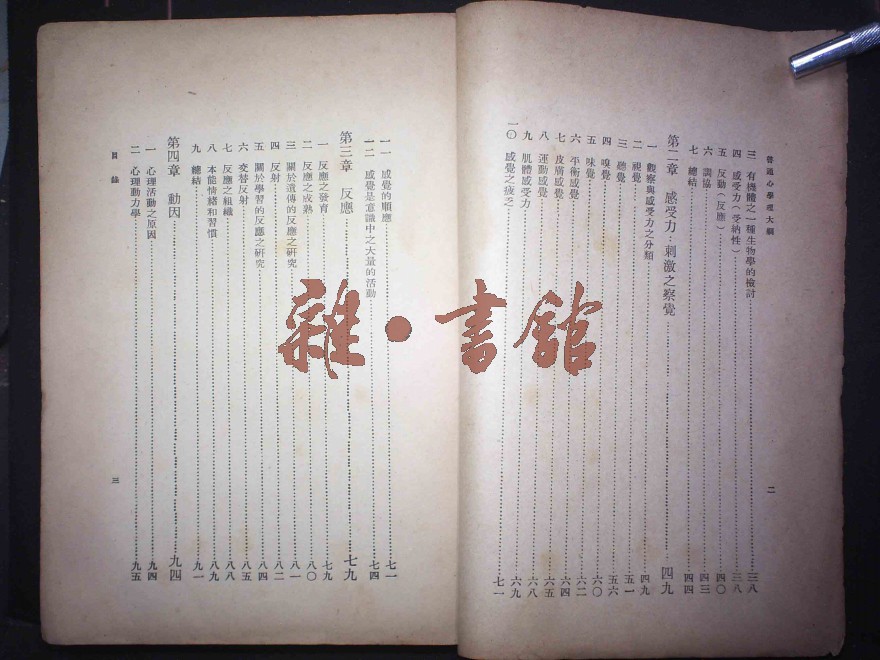 普通心學理大綱
二
三 有機體之一種生物學的檢討……三八
四 感受力（受納性）……三八
五 反動（反應）……四〇
六 調協……四三
七 總結……四四
第二章 感受力：刺激之察覺……四九
一 觀察與感受力之分類……四九
二 視覺……五一
三 聽覺……五六
四 嗅覺……六〇
五 味覺……六二
六 平衡感覺……六四
七 皮膚感覺……六五
八 運動感覺……六八
九 肌體感受力……六九
一〇 感覺之疲乏……七一
一一 感覺的順應……七一
一二 感覺是意識中之大量的活動……七四
第三章 反應……七九
一 反應之發育……七九
二 反應之成熟……八〇
三 關於遺傳的反應之硏究……八一
四 反射……八二
五 關於學習的反應之硏究……八四
六 交替反射……八五
七 反應之組織……八八
八 本能情緒和習慣……八九
九 總結……九一
第四章 動因……九四
一 心理活動之原因……九四
二 心理動力學……九五
目錄
三
雜·書館